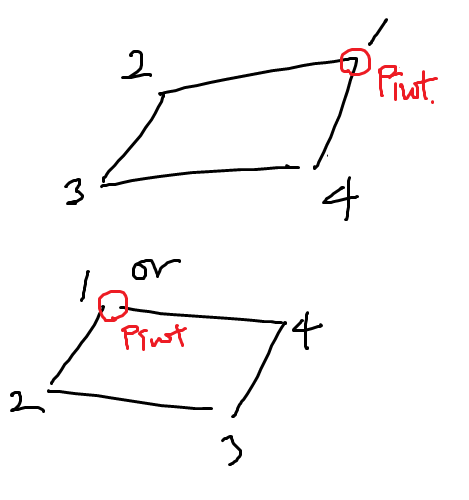 1
2
Pivot.
3
4
or
1
Pivot
4
2
3